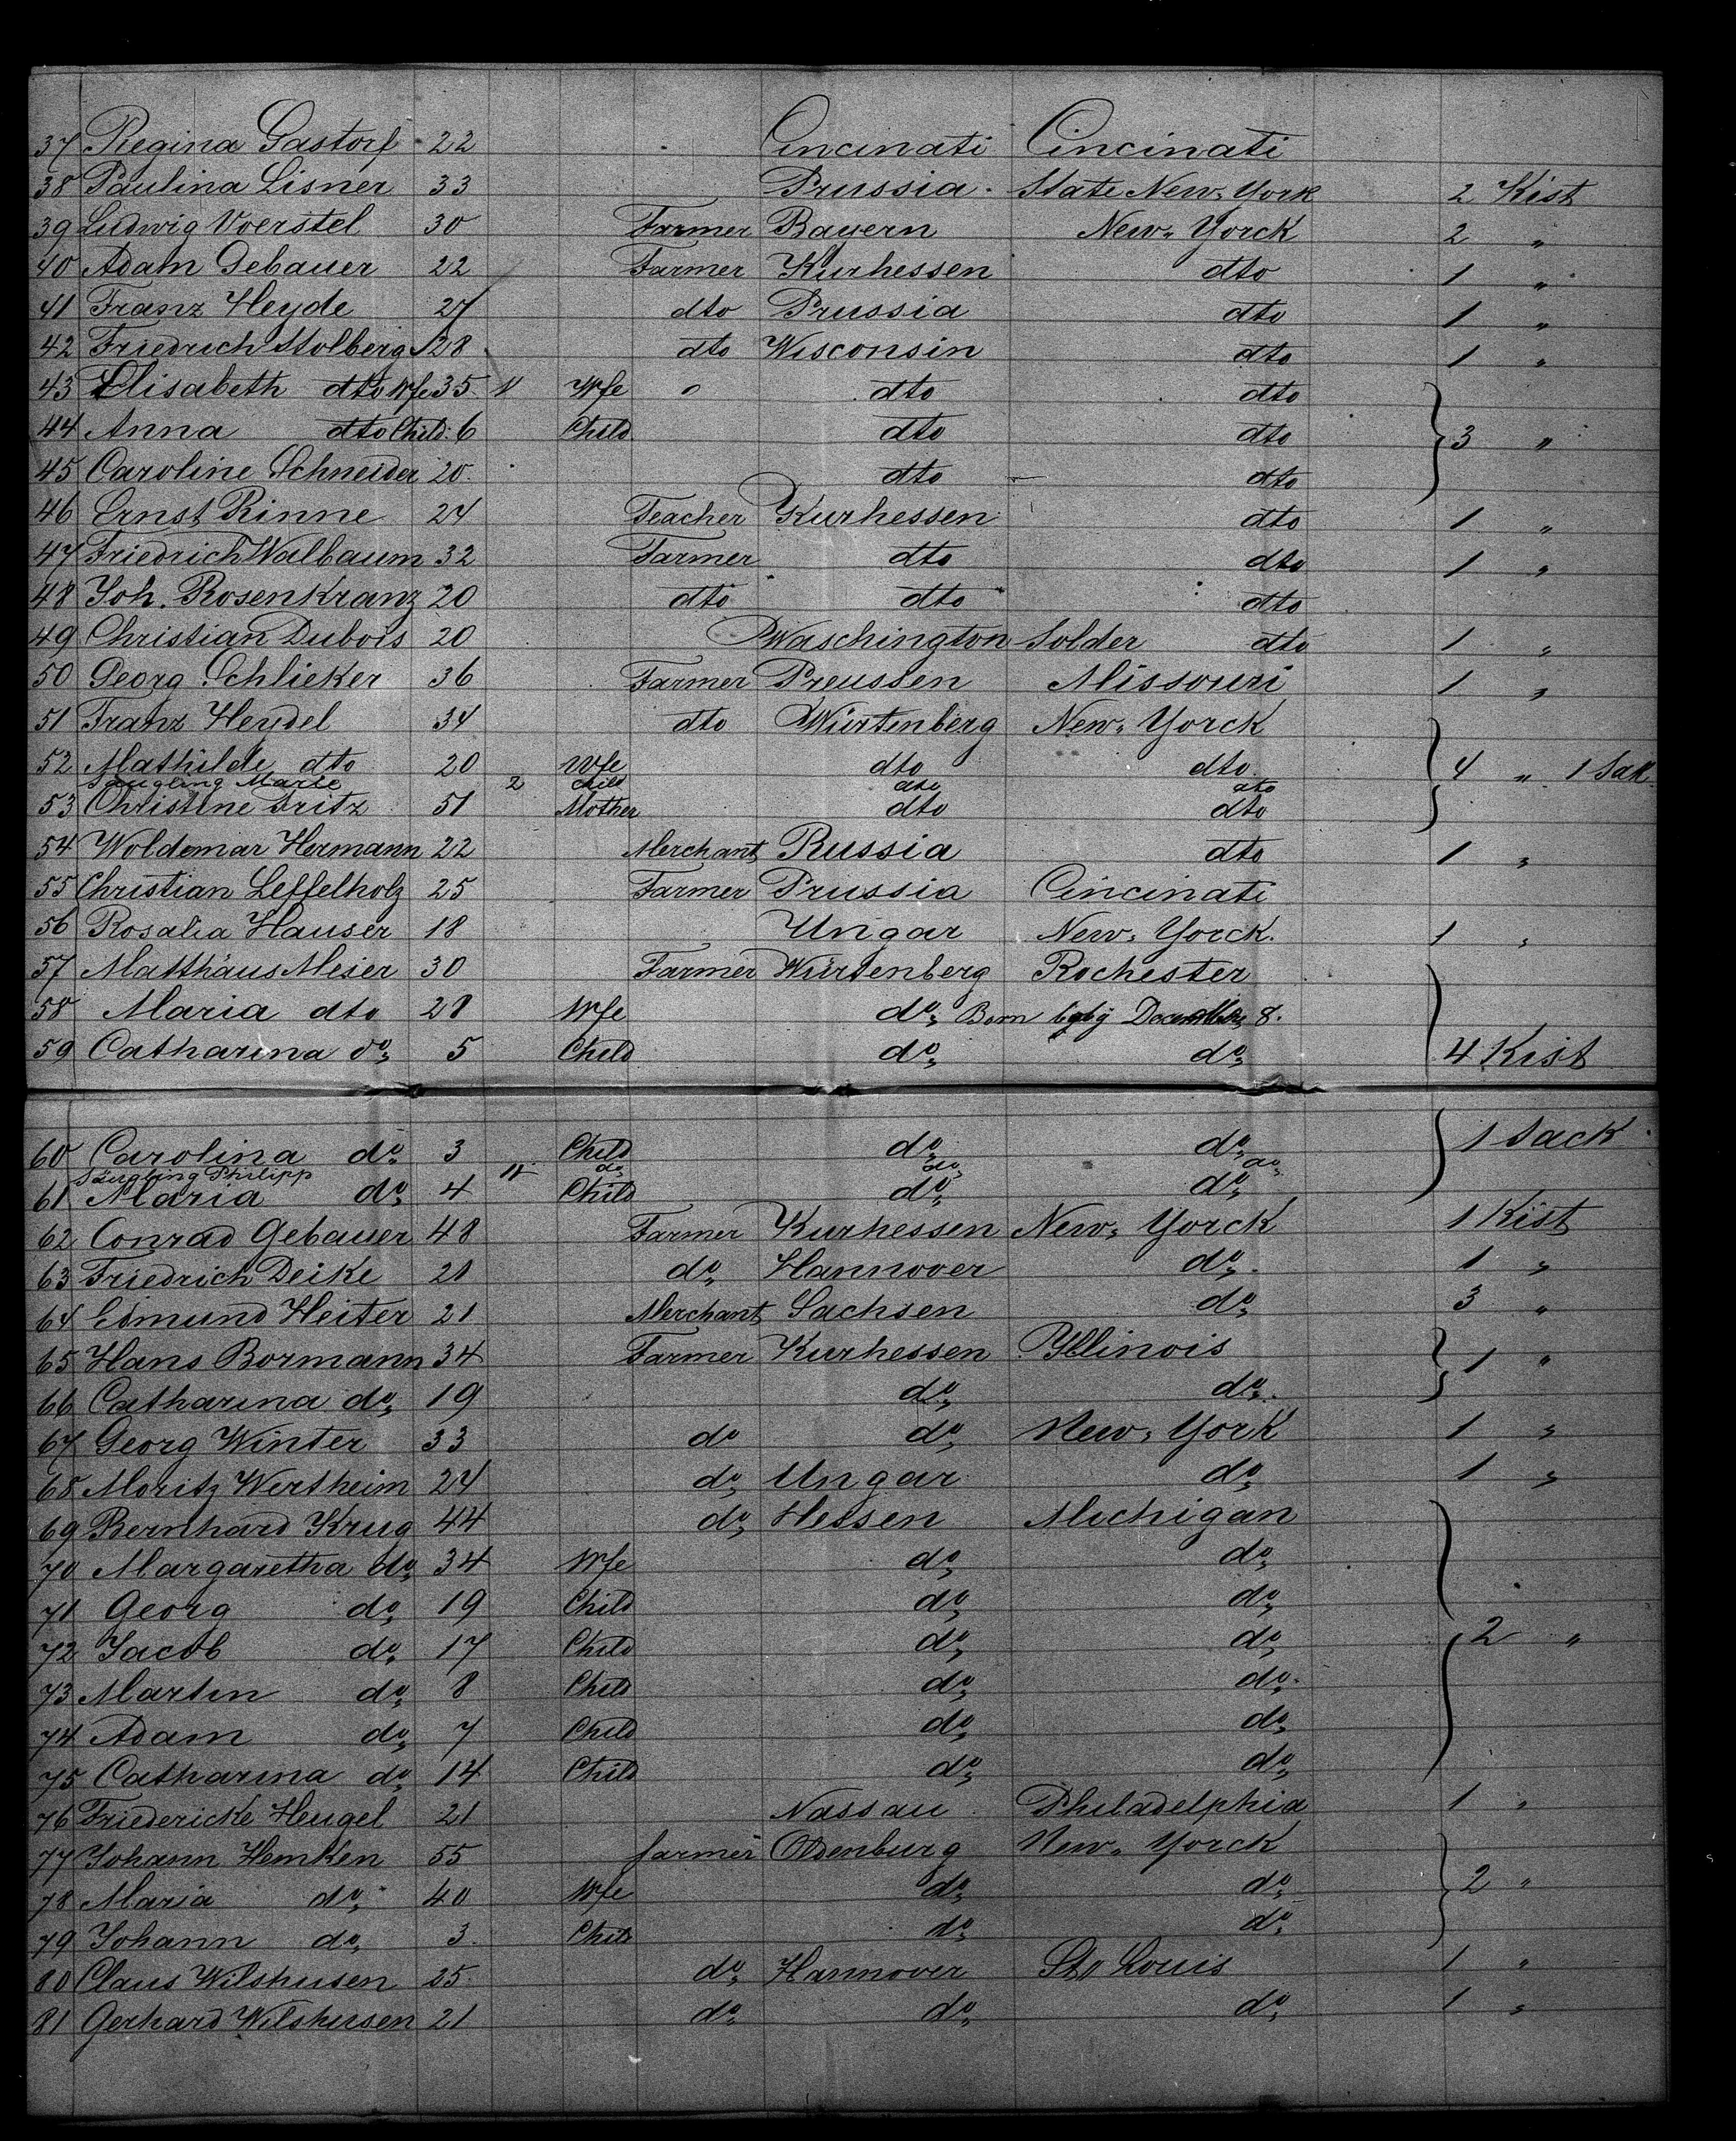 37 Regina Gastorf 22 Cincinati Cincinati
38 Paulina Lisner 33 Prussia. State New York 2 Kist
39 Ludwig Voerstel 30 Farmer Bayern New Yorck 2 "
40 Adam Gebauer 22 Farmer Kurhessen dto 1 "
41 Franz Heyde 27 dto Prussia dto 1 "
42 Friedrich Stolberg 28 dto Wisconsin dto 1 "
43 Elisabeth dto Wfe 35 Wfe " dto dto
44 Anna dto Child 6 Child dto dto 3 "
45 Caroline Schneider 20 dto dto
46 Ernst Rinne 24 Teacher Kurhessen dto 1 "
47 Friedrich Walbaum 32 Farmer dto dto 1 "
48 Joh. Rosenkranz 20 dto dto dto
49 Christian Dubois 20 Waschington Solder dto 1 "
50 Georg Schlieker 36 Farmer Preussen Missouri 1 "
51 Franz Heydel 34 dto Würtenberg New Yorck
52 Mathilde dto 20 Wfe dto dto 4 " 1 Sak
Saugling Marie 2 Child dto dto
53 Christine Fritz 51 Mother dto dto
54 Woldemar Hermann 22 Merchant Russia dto 1 "
55 Christian Leffelholz 25 Farmer Prussia Cincinati
56 Rosalia Hauser 18 Ungar New Yorck. 1 "
57 Matthäus Meier 30 Farmer Würtenberg Rochester
58 Maria dto 28 Wfe do Born December 8.
59 Catharina do 5 Child do do 4 Kist
60 Carolina do 3 Child do do 1 Sack
Säugling Philipp do do do
61 Maria do 4 Child do do
62 Conrad Gebauer 48 Farmer Kurhessen New Yorck 1 Kist
63 Friedrich Deike 21 do Hannover do 1 "
64 Edmund Heiter 21 Merchant Sachsen do 3 "
65 Hans Bormann 34 Farmer Kurhessen Yllinois 1 "
66 Catharina do 19 do do
67 Georg Winter 33 do do New York 1 "
68 Moritz Wertheim 24 do Ungar do 1 "
69 Bernhard Krug 44 do Hessen Michigan
70 Margaretha do 34 Wfe do do
71 Georg do 19 Child do do
72 Jacob do 17 Child do do 2 "
73 Martin do 8 Child do do
74 Adam do 7 Child do do
75 Catharina do 14 Child do do
76 Friedericke Heugel 21 Nassau Philadelphia 1 "
77 Johann Hemken 55 farmer Oldenburg New Yorck
78 Maria do 40 Wfe do do 2 "
79 Johann do 3 Child do do
80 Claus Wilshusen 25 do Hannover St Louis 1 "
81 Gerhard Wilshusen 21 do do do 1 "